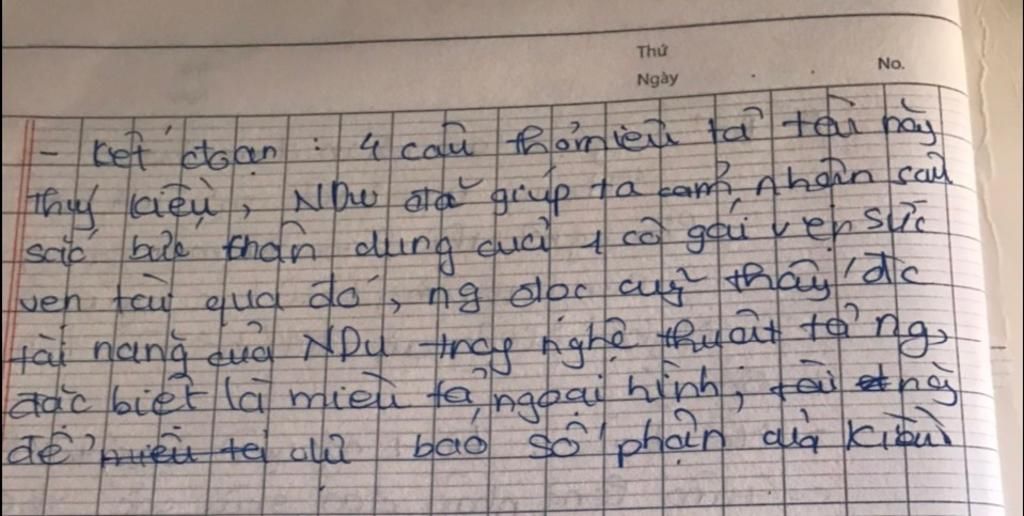 Thứ
Ngày . . No.
- Kết đoạn : 4 câu thơ miêu tả tài này
Thuý Kiều, NDu đã giúp ta cảm nhận sâu
sắc bức chân dung của 1 cô gái vẹn sắc
vẹn tài qua đó, ng đọc cũng thấy đc
tài năng của NDu trog nghệ thuật tả ng,
đặc biệt là miêu tả ngoại hình, tài này
để dự báo số phận của Kiều